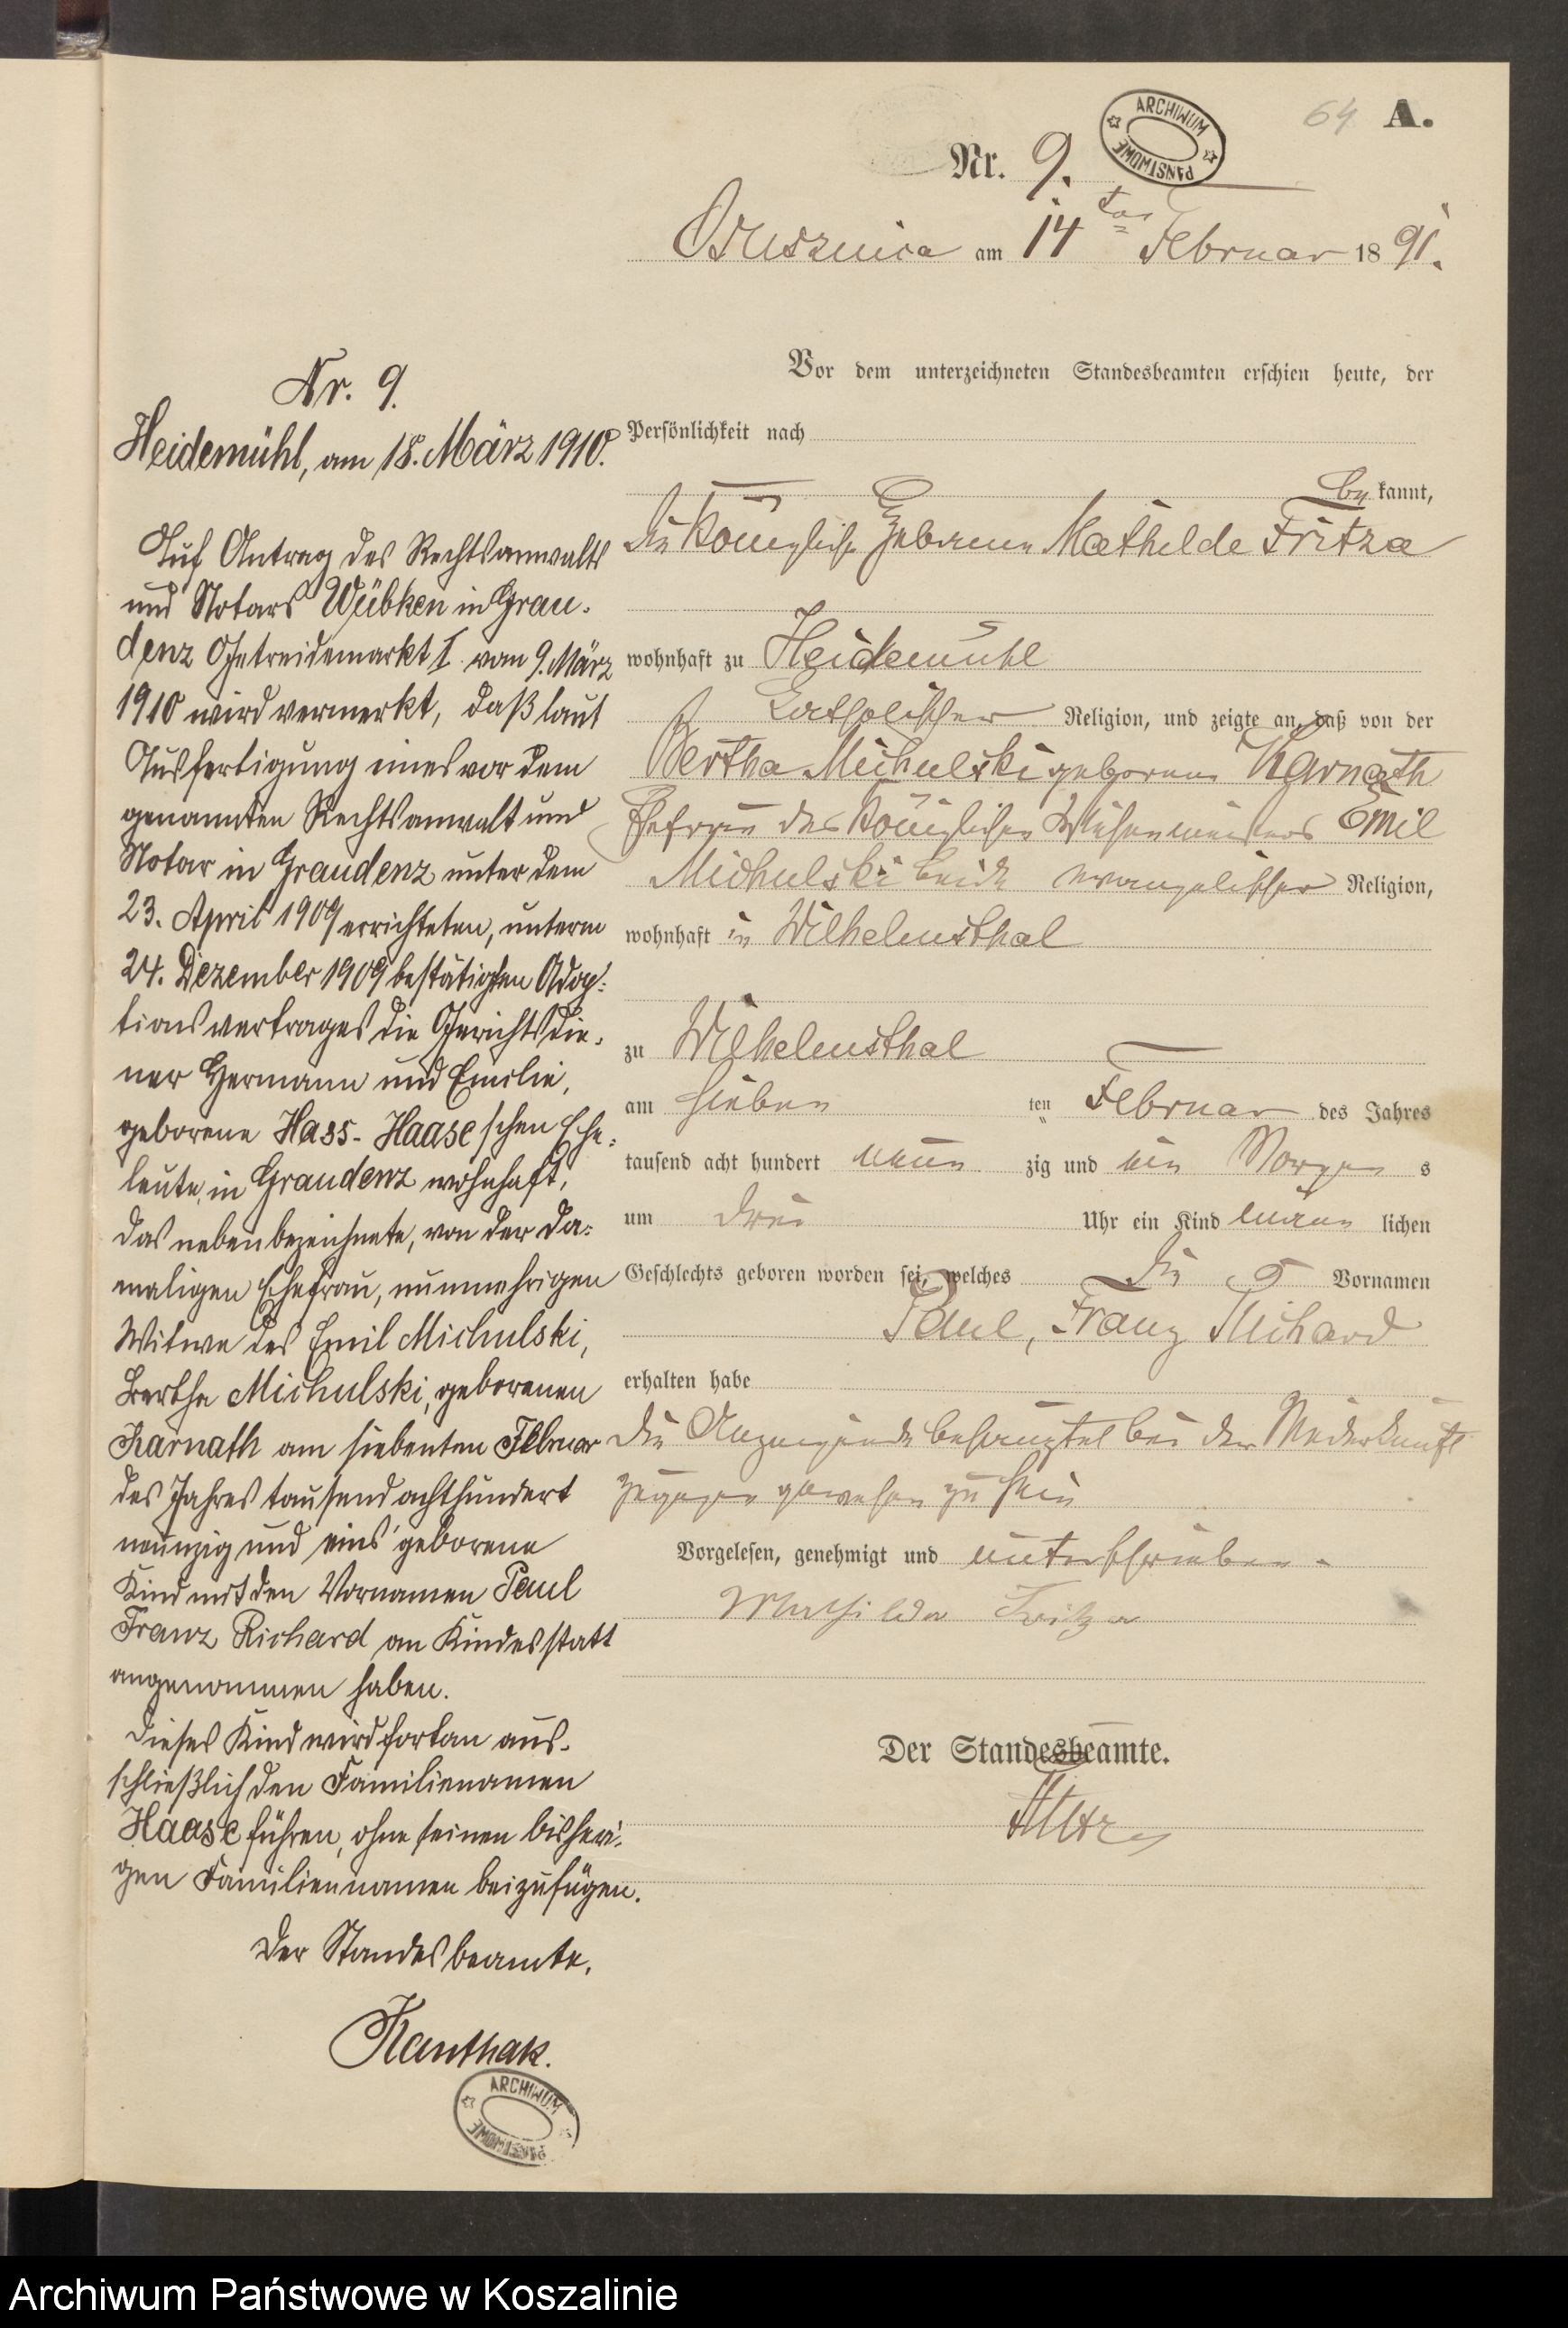 64 A.
ARCHIWUM PAŃSTWOWE
Nr. 9.
Osusznica am 14ten Februar 1891.
Vor dem unterzeichneten Standesbeamten erschien heute, der
Persönlichkeit nach
be kannt,
die Königliche Hebamme Mathilde Fritza
wohnhaft zu Heidemühl
katholischer Religion, und zeigte an, daß von der
Bertha Michulski geborenen Karnath
Ehefrau des Königlichen Wiesenmeisters Emil
Michulski beide evangelischer Religion,
wohnhaft in Wilhelmsthal
zu Wilhelmsthal
am sieben ten Februar des Jahres
tausend acht hundert neun zig und ein Morgens
um drei Uhr ein Kind männ lichen
Geschlechts geboren worden sei, welches die Vornamen
Paul, Franz Richard
erhalten habe
Die Anzeigende behauptet bei der Niederkunft
zugegen gewesen zu sein
Vorgelesen, genehmigt und unterschrieben.
Mathilde Fritza
Der Standesbeamte.
Nr. 9.
Heidemühl, am 18. März 1910.
Auf Antrag des Rechtsanwalts
und Notars Wübken in Grau-
denz Getreidemarkt I vom 9. März
1910 wird vermerkt, daß laut
Ausfertigung eines vor dem
genannten Rechtsanwalt und
Notar in Graudenz unter dem
23. April 1909 errichteten, unterm
24. Dezember 1909 bestätigten Adop-
tionsvertrages die Gerichtsdie-
ner Hermann und Emilie,
geborene Hass-Haase'schen Ehe-
leute, in Graudenz wohnhaft,
das nebenbezeichnete, von der da-
maligen Ehefrau, nunmehrigen
Witwe des Emil Michulski,
Bertha Michulski, geborenen
Karnath am siebenten Februar
des Jahres tausend achthundert
neunzig und eins geborene
Kind mit den Vornamen Paul
Franz Richard an Kindesstatt
angenommen haben.
Dieses Kind wird fortan aus-
schließlich den Familiennamen
Haase führen, ohne seinen bisheri-
gen Familiennamen beizufügen.
Der Standesbeamte.
Kanthak.
ARCHIWUM PAŃSTWOWE
Archiwum Państwowe w Koszalinie